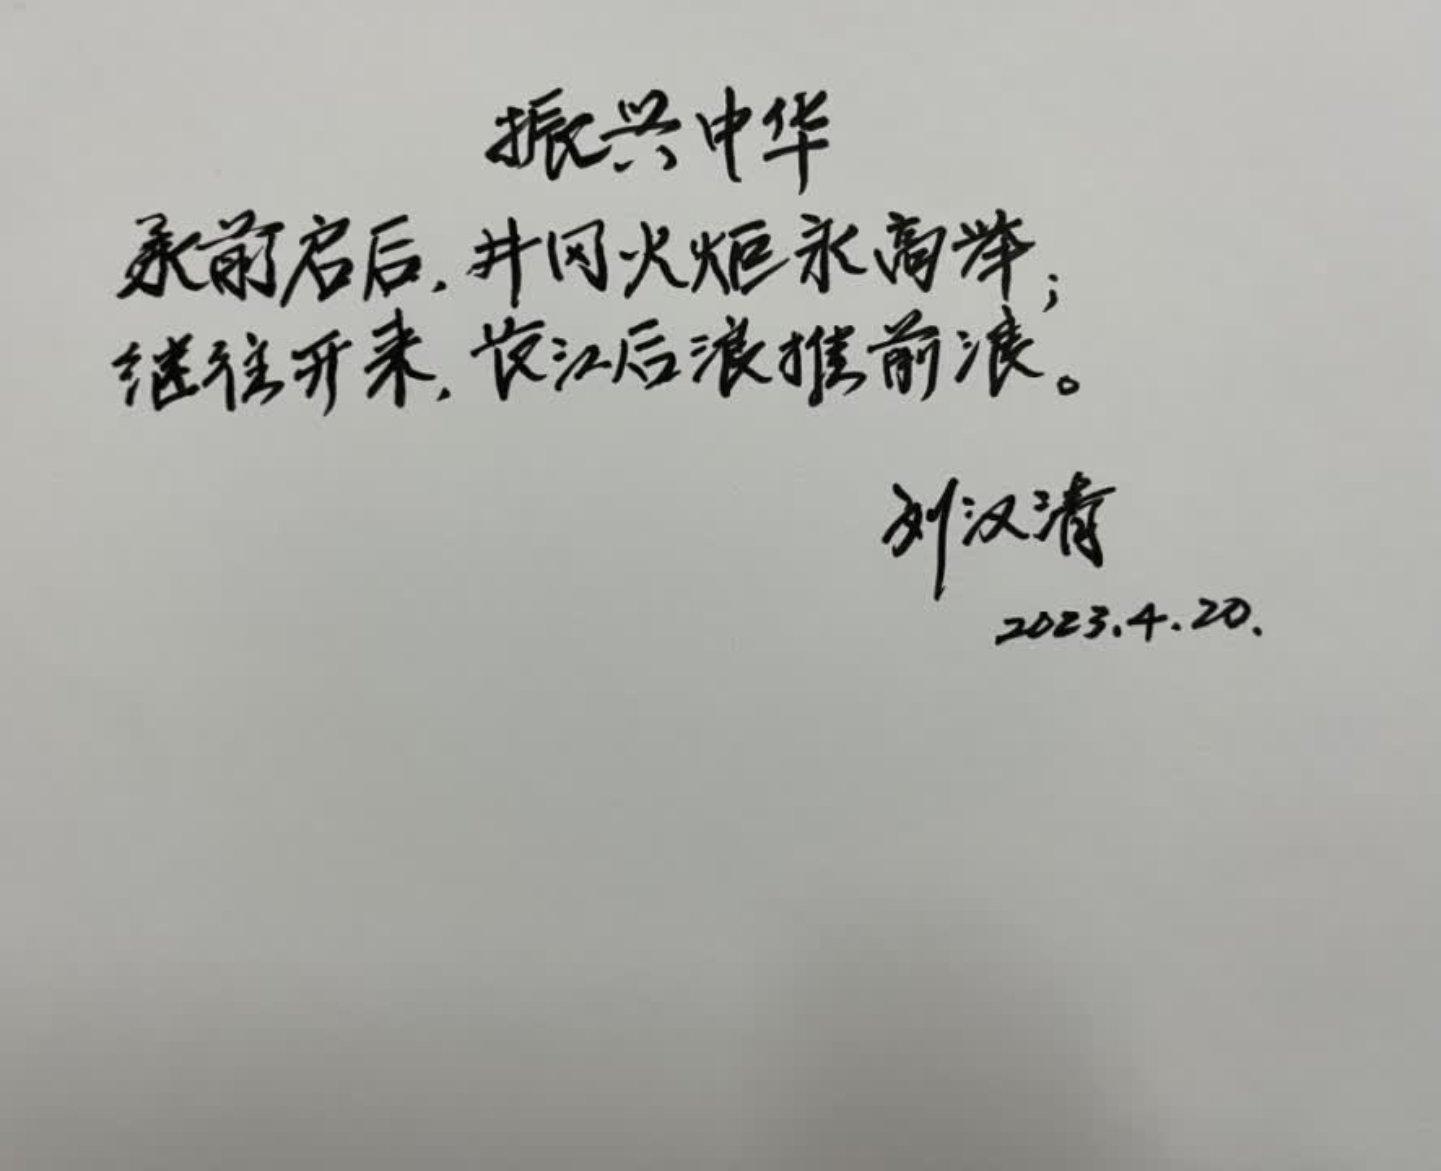 振兴中华
承前启后，井冈火炬永高举；
继往开来，长江后浪推前浪。
刘汉清
2023.4.20.